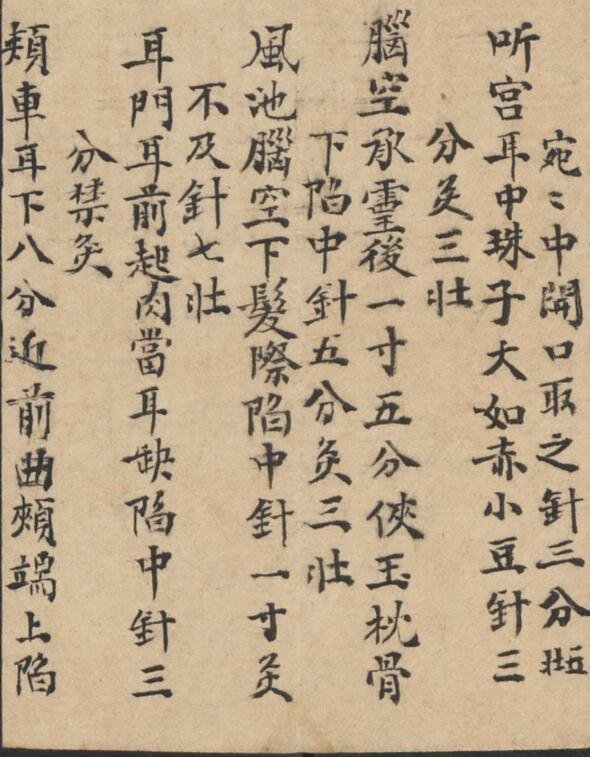 宛〻中開口取之針三分壯五
听宫耳中珠子大如赤小豆針三
分灸三壯
腦空承靈後一寸五分俠玉枕骨
下陷中針五分灸三壯
風池腦空下髮際陷中針一寸灸
不及針七壯
耳門耳前起肉當耳缺陷中針三
分禁灸
頬車耳下八分近前曲頬端上陷